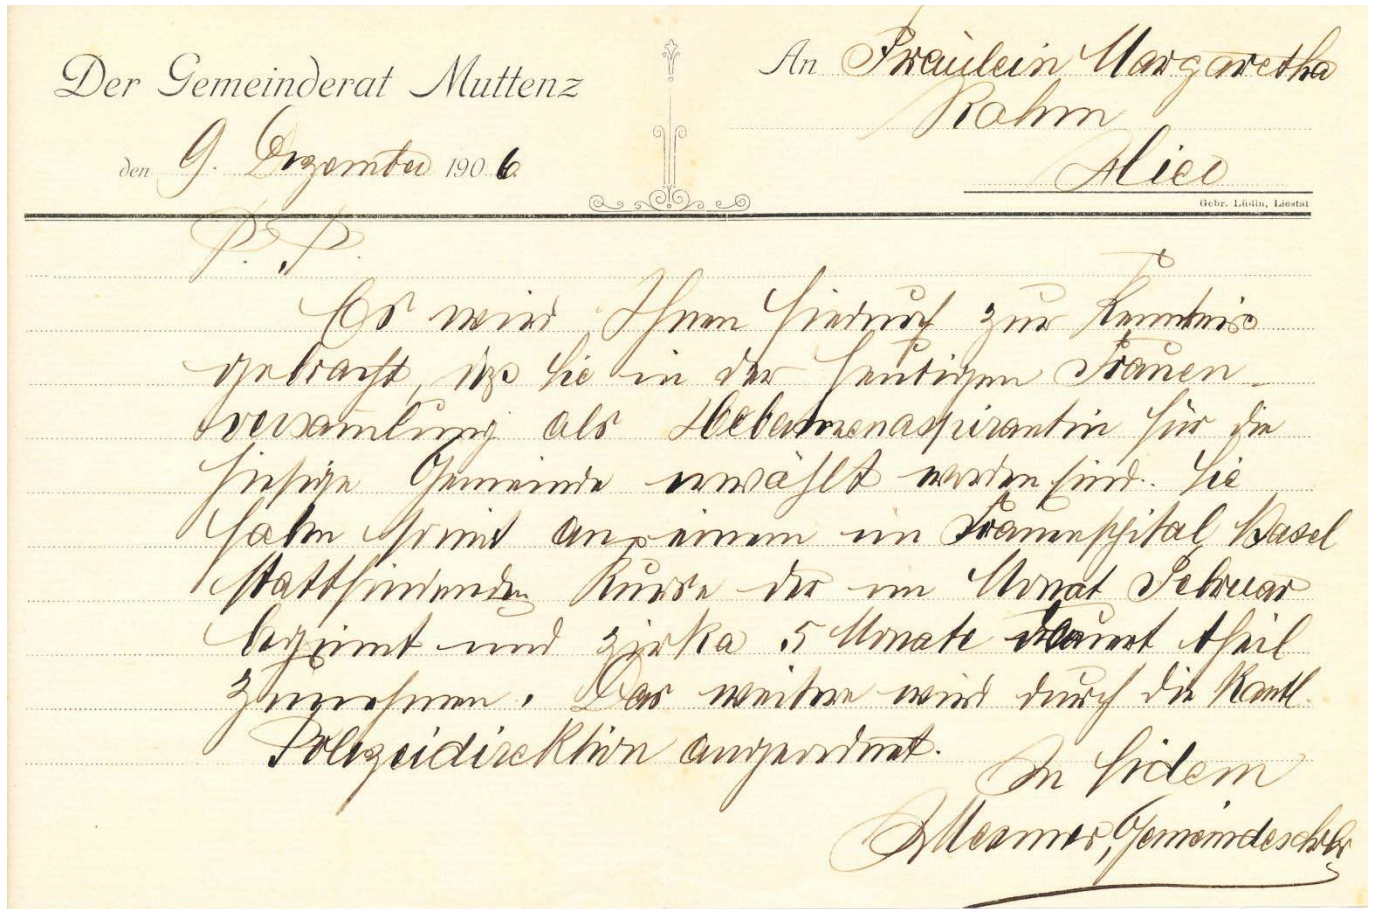 Der Gemeinderat Muttenz
den 9. Dezember 1906
An Fräulein Margaretha
Rahm
Hier
Gebr. Lüdin, Liestal
P. P.
Es wird Ihnen hiedurch zur Kenntnis
gebracht, daß Sie in der heutigen Frauen-
versamlung als Hebamenaspirantin für die
hiesige Gemeinde erwählt worden sind. Sie
haben somit an einem im Frauenspital Basel
stattfindenden Kurse der im Monat Februar
beginnt und zirka 5 Monate dauert theil
zunehmen. Das weitere wird durch die Kantl.
Polizeidirektion angeordnet.
In fidem
Mesmer, Gemeindeschrbr